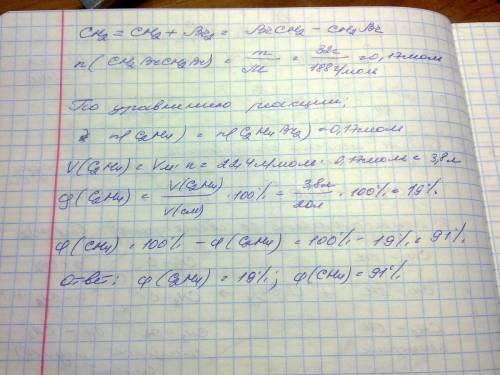 CH₂ = CH₂ + Br₂ = BrCH₂ – CH₂Br
n(CH₂BrCH₂Br) = m/M = 32г/188г/моль = 0,17моль
По уравнению реакции;
n(C₂H₄) = n(C₂H₄Br₂) = 0,17моль
V(C₂H₄) = Vм · n = 22,4л/моль · 0,17моль = 3,8л
φ(C₂H₄) = V(C₂H₄)/V(см) · 100% = 3,8л/20л · 100% = 19%
φ(CH₄) = 100% – φ(C₂H₄) = 100% – 19% = 91%
Ответ: φ(C₂H₄) = 19%; φ(CH₄) = 91%